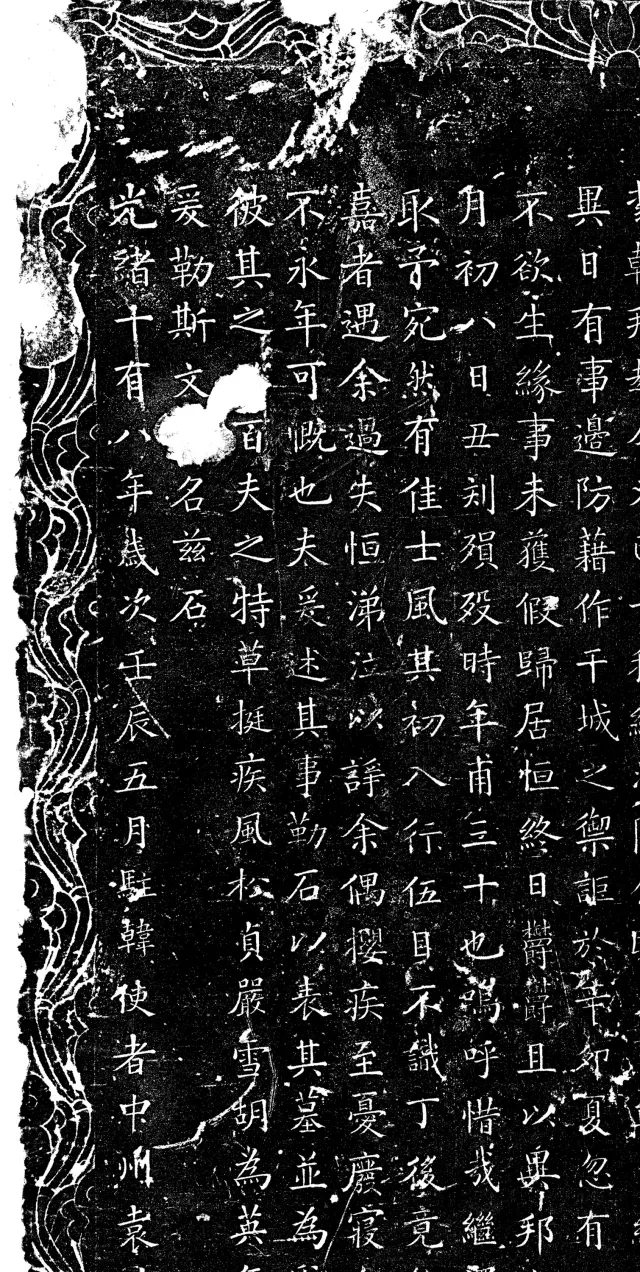 異日有事邊防藉作干城之禦詎於辛卯夏忽有
不欲生緣事未獲假歸居恒終日欝欝且以異邦
月初八日丑刻殞歿時年甫三十也嗚呼惜哉繼
取予宛然有佳士風其初入行伍目不識丁後竟
嘉者遇余過失恒涕泣以諍余偶攖疾至憂廢寢
不永年可慨也夫爰述其事勒石以表其墓並為
彼其之百夫之特草挺疾風松貞嚴雪胡為英
爰勒斯文名茲石
光緒十有八年歲次壬辰五月駐韓使者中州袁